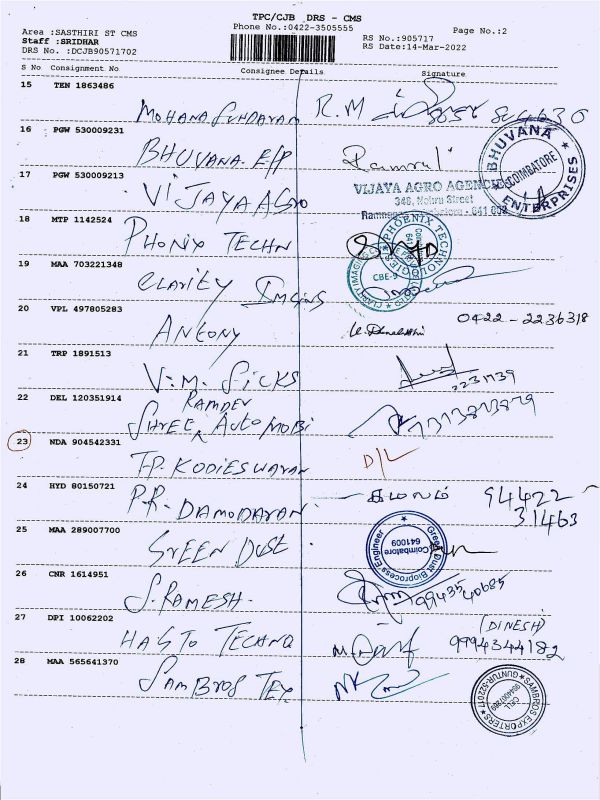 TPC/CJB DRS - CMS
Phone No.:0422-3505555
Page No.:2
Area :SASTHIRI ST CMS
Staff :SRIDHAR
DRS No. :DCJB90571702
RS No.:905717
RS Date:14-Mar-2022
S No Consignment No Consignee Details Signature
15 TEN 1863486
MOHANA SUNDARAM R.M
16 PGW 530009231
BHUVANA E/P
BHUVANA ENTERPRISES COIMBATORE
17 PGW 530009213
VIJAYA AGRO
VIJAYA AGRO AGENCIES
348, Nehru Street
641 009
18 MTP 1142524
PHONIX TECHN
PHOENIX TECHNOLOGIES
19 MAA 703221348
CLARITY IMGINS
CLARITY IMAGING
CBE-9
20 VPL 497805283
ANTONY
0422 - 2236318
21 TRP 1891513
V.M. SICKS
2231739
22 DEL 120351914
SHREE RAMDEV AUTO MOBI
23 NDA 904542331
T.P. KODIESWARAN D/L
24 HYD 80150721
P.R. DAMODARAN கமலம் 94422
31463
25 MAA 289007700
GREEN DUST
Green Dust Bioprocess Engineer Coimbatore 641009
26 CNR 1614951
S. RAMESH. 99435 40685
27 DPI 10062202
HASTO TECHNO (DINESH)
9994344182
28 MAA 565641370
SAMBROS TEX
SAMBROS EXPORTERS GUNTUR-522017
CELL